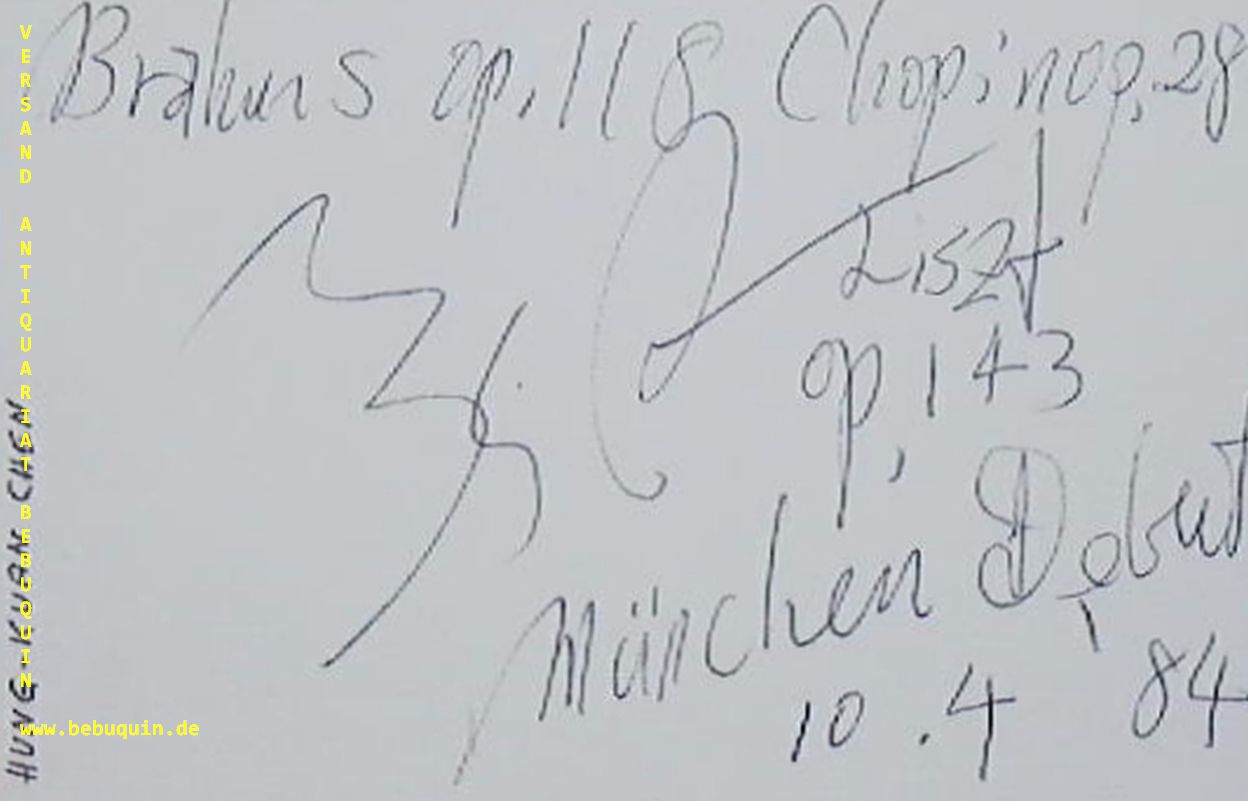 Brahms op. 118 Chopin op. 28
Liszt
op, 143
München Debut
10 . 4 84
HUNG-KUAN CHEN
VERSAND ANTIQUARIAT BEBUQUIN
www.bebuquin.de